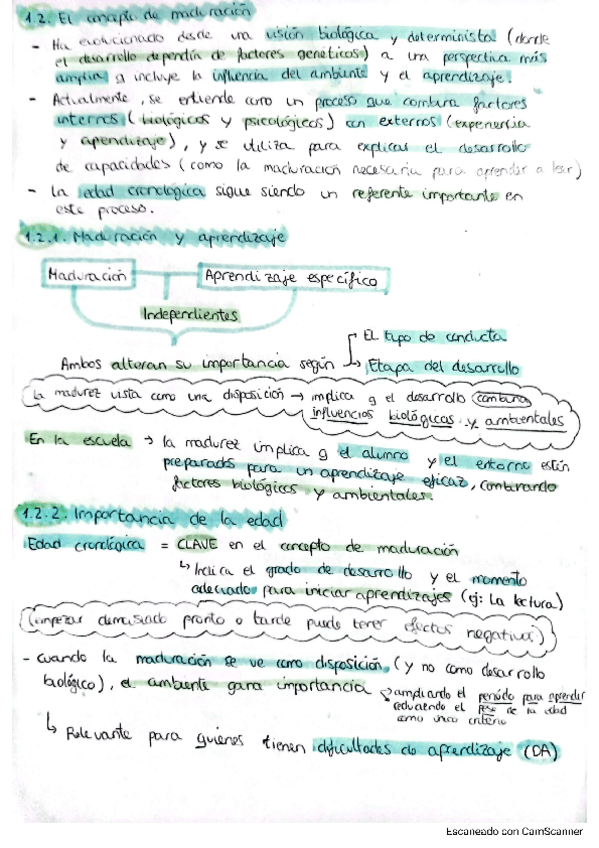 1.2. El concepto de maduración
- Ha evolucionado desde una visión biológica y determinista (donde
el desarrollo dependía de factores genéticos) a una perspectiva más
amplia q incluye la influencia del ambiente y el aprendizaje.
- Actualmente, se entiende como un proceso que combina factores
internos (biológicos y psicológicos) con externos (experiencia
y aprendizaje), y se utiliza para explicar el desarrollo
de capacidades (como la maduración necesaria para aprender a leer)
- La edad cronológica sigue siendo un referente importante en
este proceso.
1.2.1. Maduración y aprendizaje
Maduración Aprendizaje específico
Independientes
Ambos alteran su importancia según → El tipo de conducta
→ Etapa del desarrollo
la madurez vista como una disposición → implica q el desarrollo combina
influencias biológicas y ambientales
En la escuela → la madurez implica q el alumno y el entorno están
preparados para un aprendizaje eficaz, combinando
factores biológicos y ambientales.
1.2.2. Importancia de la edad
Edad cronológica = CLAVE en el concepto de maduración
↳ Indica el grado de desarrollo y el momento
adecuado para iniciar aprendizajes (ej: La lectura)
(empezar demasiado pronto o tarde puede tener efectos negativos)
- Cuando la maduración se ve como disposición, (y no como desarrollo
biológico), el ambiente gana importancia → ampliando el período para aprender
reduciendo el peso de la edad
como único criterio
↳ Relevante para quienes tienen dificultades de aprendizaje (DA)
Escaneado con CamScanner